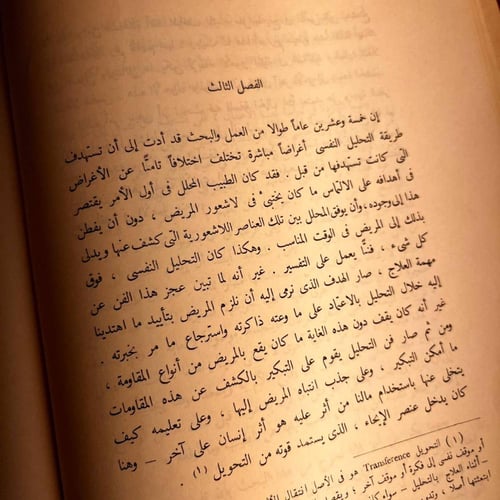 الفصل الثالث
إن خمسة وعشرين عاماً طوالا من العمل والبحث قد أدت إلى أن تستهدف
طريقة التحليل النفسى أغراضاً مباشرة تختلف اختلافاً تامًّا عن الأغراض
التى كانت تستهدفها من قبل . فقد كان الطبيب المحلل فى أول الأمر يقتصر
فى أهدافه على الالتماس ما كان يختبئ فى لاشعور المريض ، دون أن يفطن
هذا إلى وجوده ، وأن يوفق المحلل بين تلك العناصر اللاشعورية التى كشف عنها ويدلى
بذلك إلى المريض فى الوقت المناسب . وهكذا كان التحليل النفسى ، فوق
كل شىء ، فنًّا يعمل على التفسير . غير أنه لما تبين عجز هذا الفن عن
مهمة العلاج ، صار الهدف الذى نرمى إليه أن نلزم المريض بتأييد ما اهتدينا
إليه خلال التحليل بالاعتماد على ما وعته ذاكرته واسترجاع ما مر بخبرته .
غير أنه كان يقف دون هذه الغاية ما كان يقع بالمريض من أنواع المقاومة ،
ومن ثم صار فن التحليل يقوم على التبكير بالكشف عن هذه المقاومات
ما أمكن التبكير ، وعلى جذب انتباه المريض إليها ، وعلى تعليمه كيف
يتخلى عنها باستخدام مالنا من أثر عليه هو أثر إنسان على آخر – وهنا
كان يدخل عنصر الإيحاء ، الذى يستمد قوته من التحويل (١) .
(١) التحويل Transference هو فى الأصل انتقال
أو موقف نفسى إلى فكرة أو موقف آخر ؛
– أثناء العلاج بالتحليل –